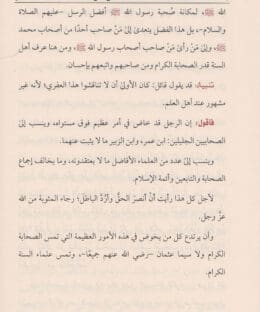 الله ﷺ، لمكانة صُحبة رسول الله ﷺ أفضل الرسل -عليهم الصلاة
والسلام-، بل هذا الفضل يتعدى إلىٰ مَنْ صاحب أحدًا من أصحاب محمد
ﷺ، وإلىٰ مَنْ رأىٰ مَنْ صاحب أصحاب رسول الله ﷺ، ومن هنا عرف أهل
السنة قدر الصحابة الكرام ومن صاحبهم واتبعهم بإحسان.
تنبيه: قد يقول قائل: كان الأولىٰ أن لا تناقشوا هذا العفري؛ لأنه غير
مشهور عند أهل العلم.
فأقول: إن الرجل قد خاض في أمر عظيم فوق مستواه، وينسب إلىٰ
الصحابيين الجليلين: ابن عمر، وابن الزبير ما لا يثبت عنهما.
وينسب إلىٰ عدد من العلماء الأفاضل ما لا يعتقدونه، وما يخالف إجماع
الصحابة والتابعين وأئمة الإسلام.
لأجل كل هذا رأيت أنْ أنصرَ الحقَّ وأرُدَّ الباطلَ؛ رجاء المثوبة من الله
عزَّ وجل.
وأن يرتدع كل من يخوض في هذه الأمور العظيمة التي تمس الصحابة
الكرام ولا سيما عثمان -رضي الله عنهم جميعًا-، وتمس علماء السنة
الكرام.